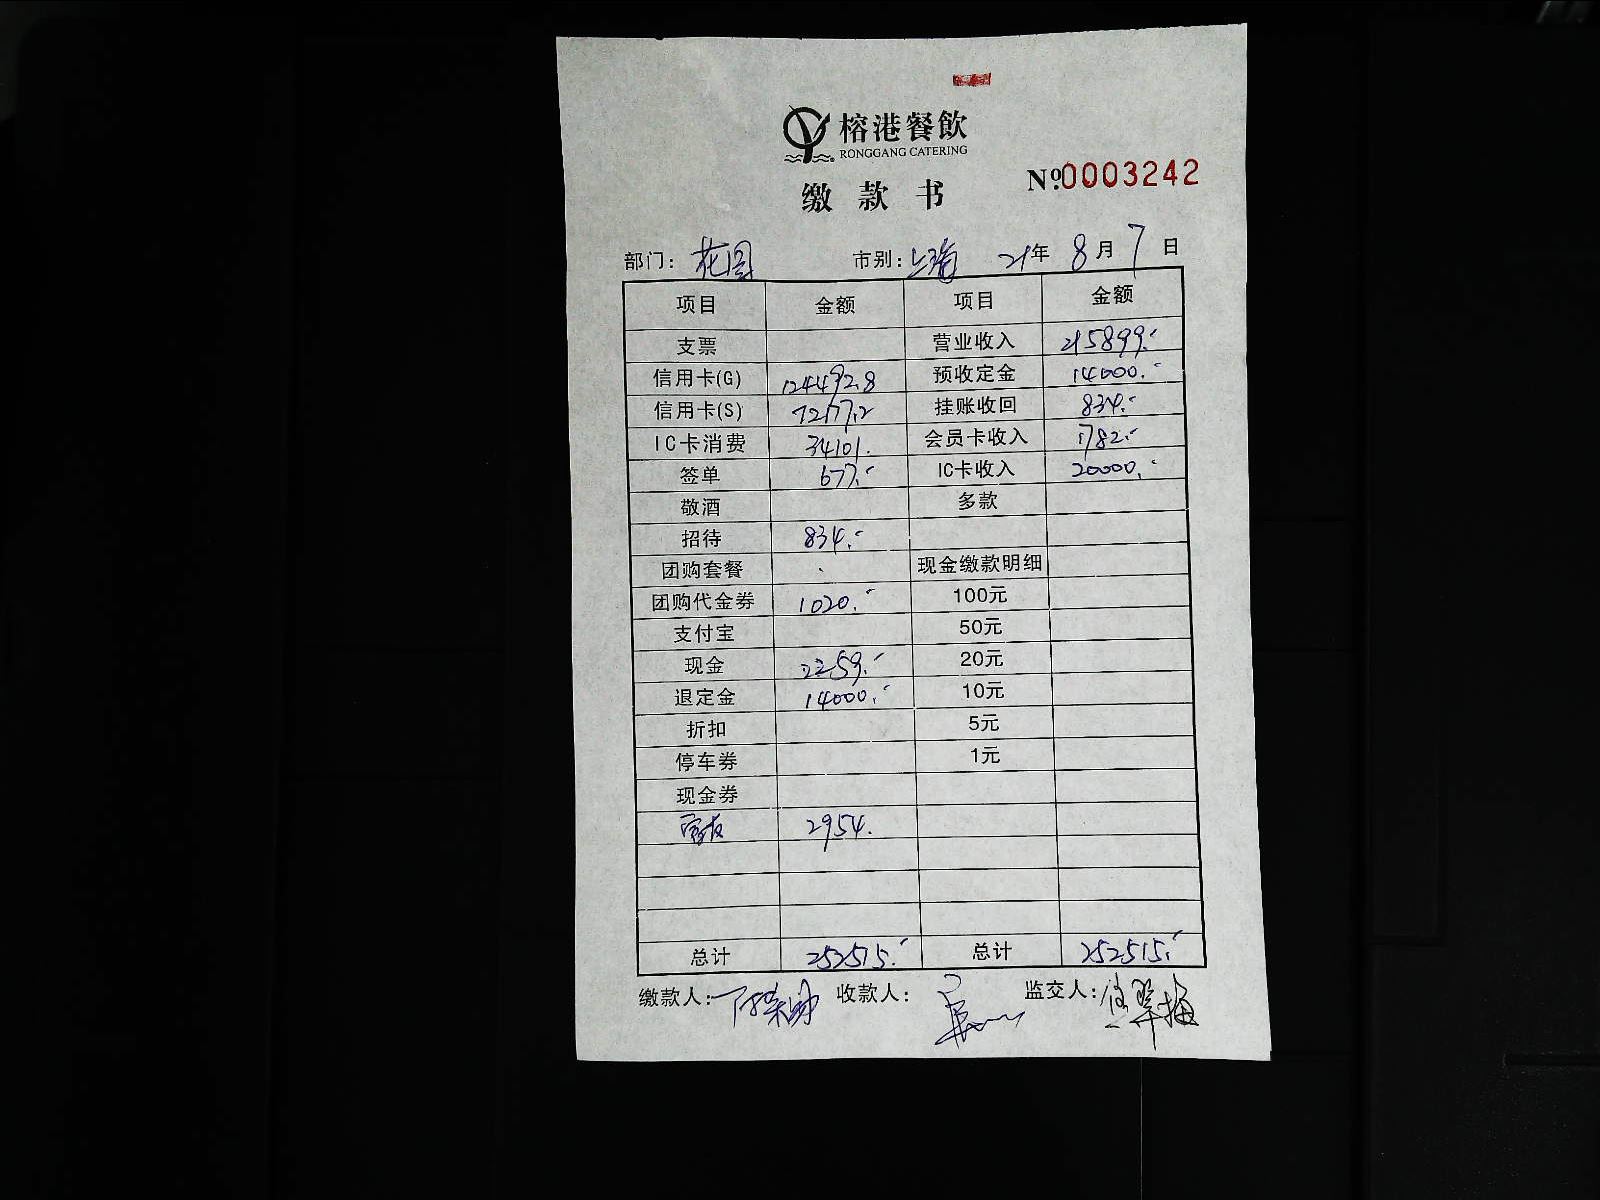 榕港餐飲
RONGGANG CATERING
缴款书 Nº0003242
部门: 花园 市别: 上海 21年 8月 7日
项目 金额 项目 金额
支票 营业收入 215899.-
信用卡(G) 124492.8 预收定金 14000.-
信用卡(S) 72177.2 挂账收回 834.-
IC卡消费 34101. 会员卡收入 1782.-
签单 677.- IC卡收入 20000.-
敬酒 多款
招待 834.-
团购套餐 现金缴款明细
团购代金券 1020.- 100元
支付宝 50元
现金 2259.- 20元
退定金 14000.- 10元
折扣 5元
停车券 1元
现金券
2954.
总计 252515.- 总计 252515.-
缴款人: 收款人: 监交人: 任翠梅